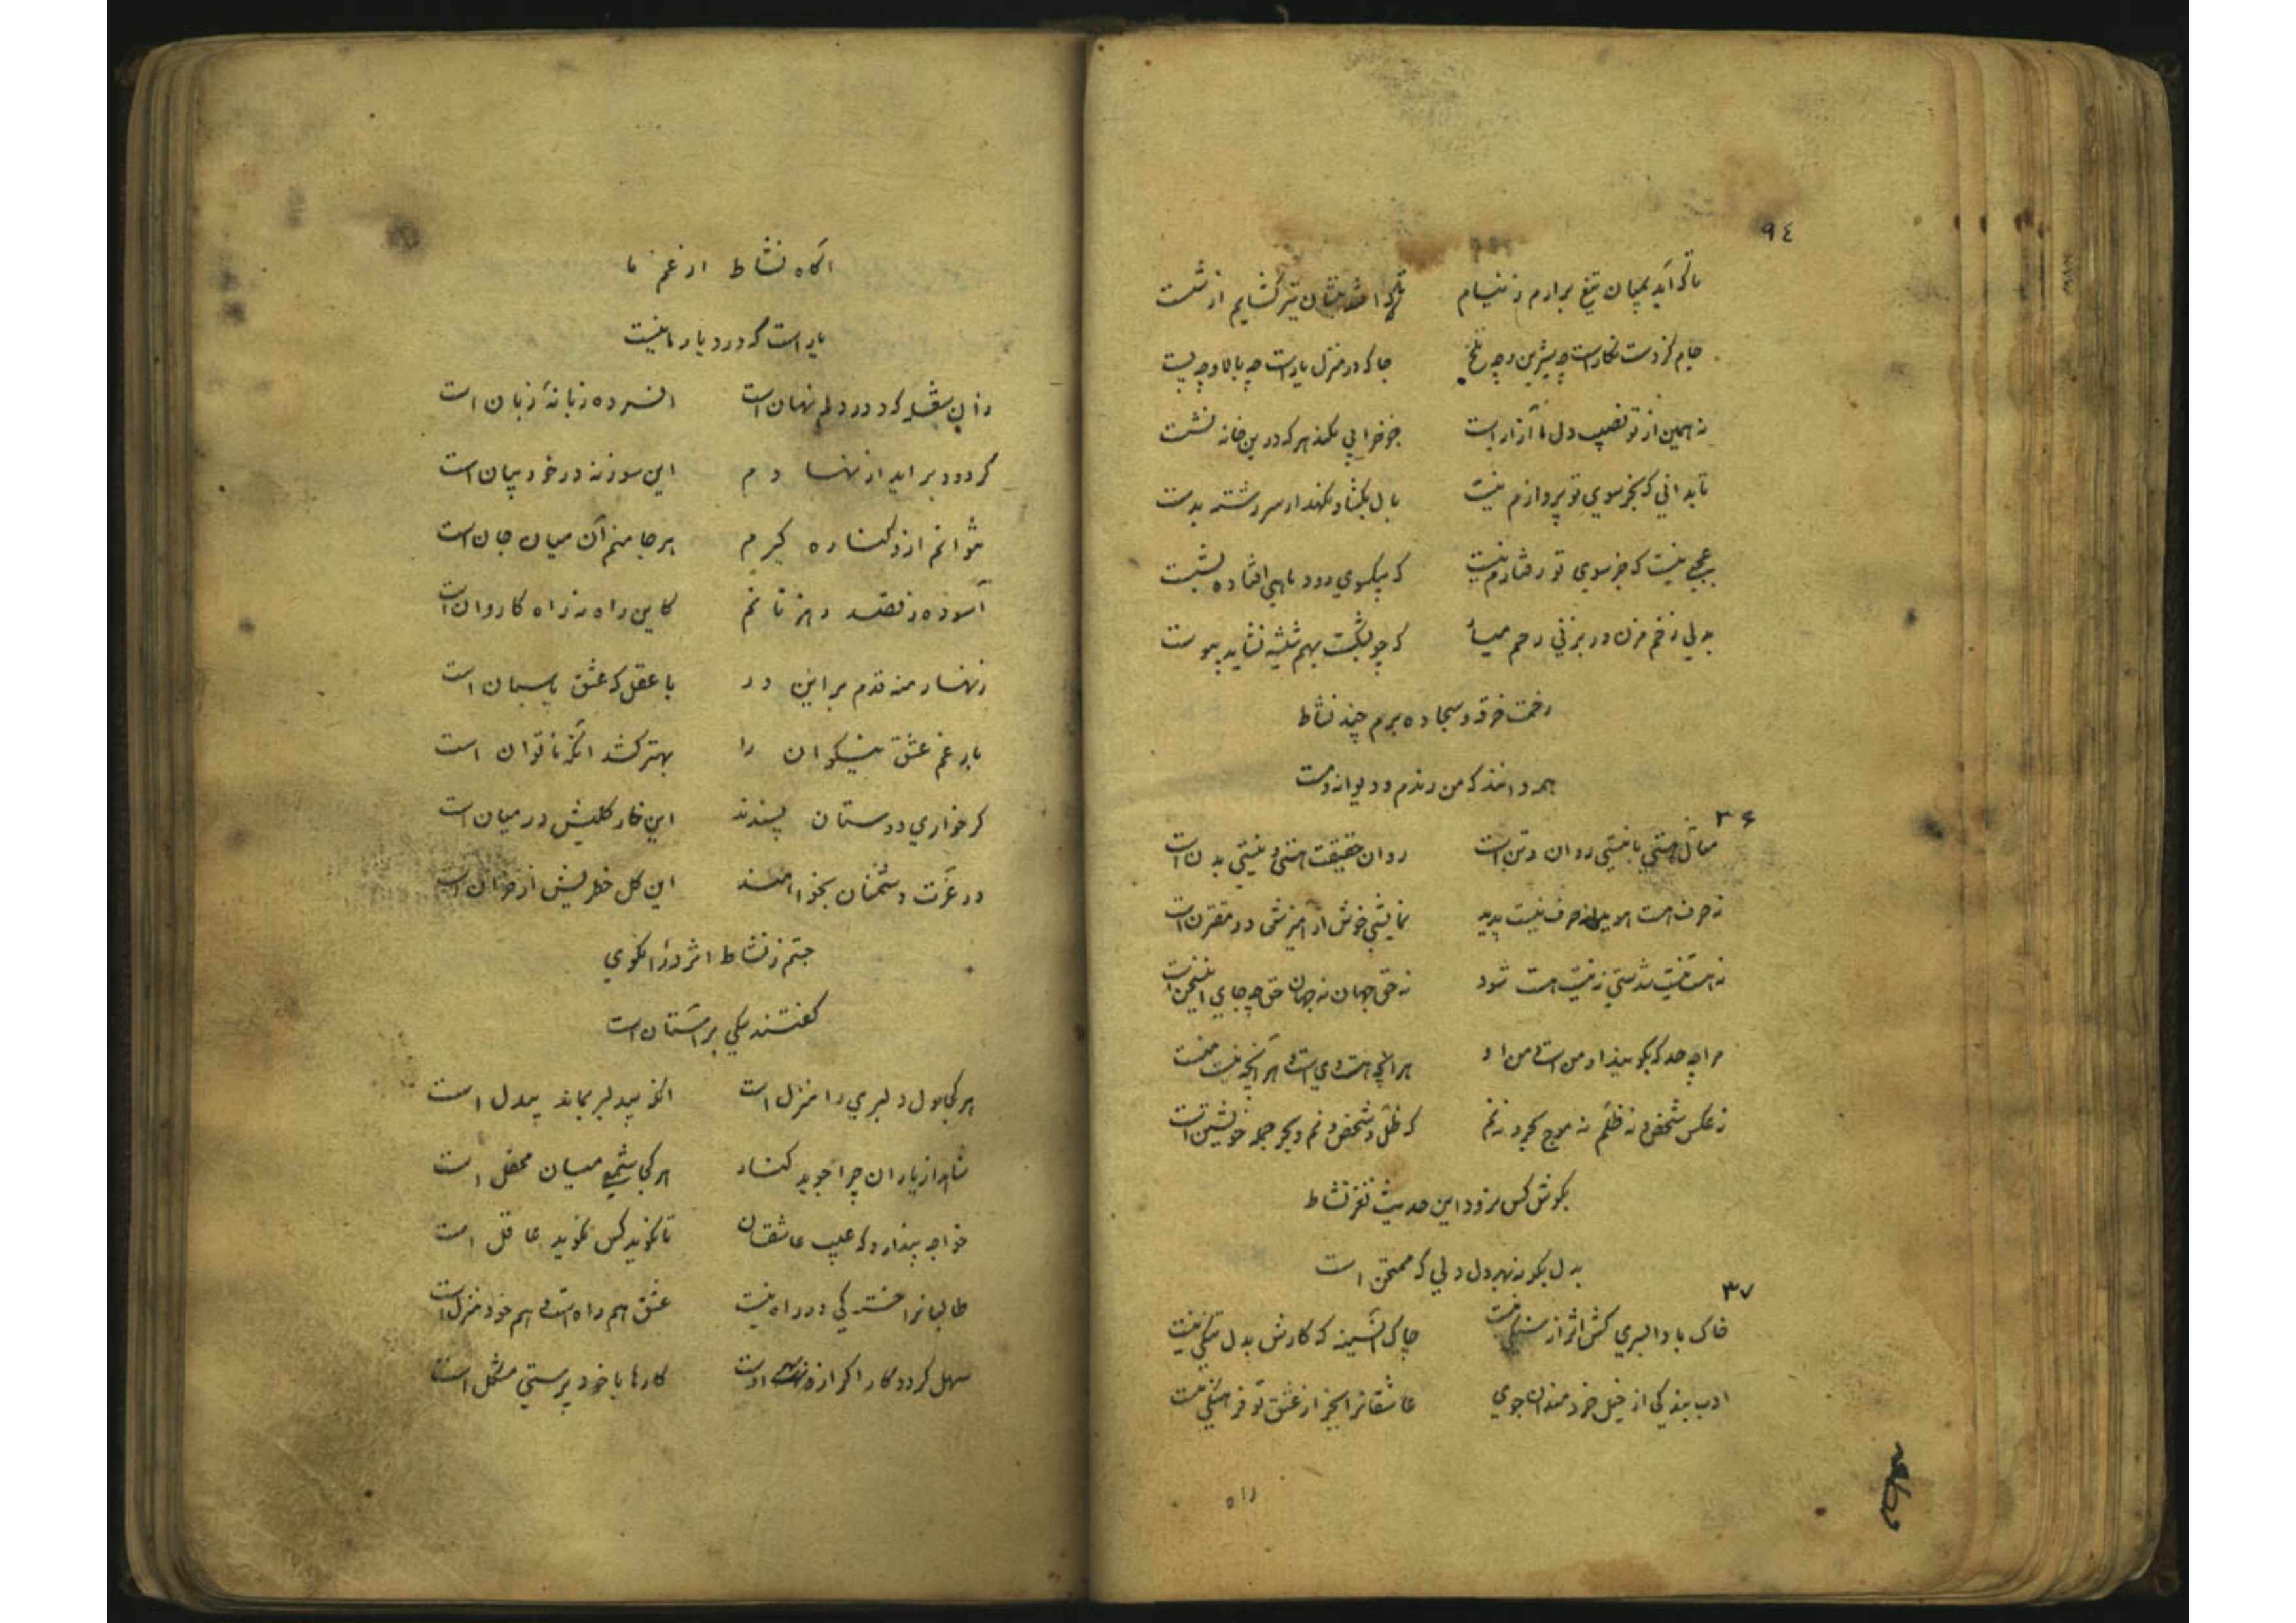 ٩٤
تا که آید بمیان تیغ برارم ز نیام تا که افتد بنشان تیر گشایم از شست
جام کز دست نگار است چه شیرین و چه تلخ جا که در منزل یار است چه بالا و چه پست
نه همین از تو نصیب دل ما آزار است جز خرابی نکند هر که درین خانه نشست
تا بدانی که بجز سوی تو پروازم نیست بال بگشا و نگهدار سر رشته بدست
عجبی نیست که جز سوی تو رفتارم نیست که بیکسوی رود ماهی افتاده بشست
بدلی زخم مزن ور بزنی رحم میار که چو بشکست بهم شیشه نشاید پیوست
رخت خرقه و سجاده برم چند نشاط
همه دانند که من رندم و دیوانه و مست
٣۶
مثال هستی با نیستی روان و تن است روان حقیقت هستی و نیستی بدن است
نه صرف هست نه از صرف نیست پدید نمایشی خوش از آمیزش دو مقترن است
نه هست نیست شدستی نه نیست هست شود نه حق جهان نه جهان حق چه جای این سخن است
مرا چه حد که بگویم از او من است و من او هر آنچه هست وی است و هر آنچه نیست منست
نه عکس شخص و نه ظلم نه موج بحر و نه نم که ظل و شخص و نم و بحر جمله خویشتن است
بگوش کس نرود این حدیث نغز نشاط
بدل بگو نه بهر دل دلی که ممتحن است
٣٧
خاک با دا بسری کش اثر از سنگی نیست چاک آن سینه که کارش بدل تنگی نیست
ادب بندگی از خیل خردمندان جوی عاشقانرا بجز از عشق تو فرهنگی نیست
راه
آگاه نشاط از غم ما
یار است که در دیار ما نیست
زان شعله که در دلم نهان است افسرده زبانهٔ زبان است
گر دود بر آید از نهادم این سوز نه در خور بیان است
نتوانم ازو کناره گیرم هر جا منم آن میان جان است
آسوده ز قصد رهزنانم کاین راه نه راه کاروان است
زنهار منه قدم بر این در با عقل که عشق پاسبان است
بار غم عشق نیکوان را بهتر کشد آنکه ناتوان است
گر خواری دوستان پسندند این خار گلیش در میان است
ور عزت دشمنان بخواهند این گل خطریش از خزان است
جستم ز نشاط اثر در آن کوی
گفتند یکی بر آستان است
هر کجا دل دلبری را منزل است آنکه بیدلبر بماند بیدل است
شاهد از یاران چرا جوید کنار هر کجا شمعی میان محفل است
خواجه پندارد که عیب عاشقان تا نگوید کس نگوید عاقل است
طالبانرا خستگی در راه نیست عشق هم راه است و هم خود منزل است
سهل گردد کار اگر از اوست کارها با خود پرستی مشکل است